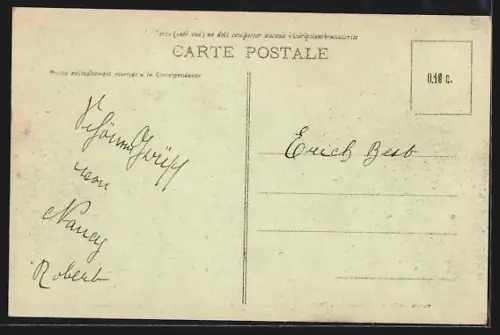 Verso (côté vue) ne doit comporter aucune inscription manuscrite
CARTE POSTALE
Partie exclusivement réservée à la Correspondance
0.10 c.
Schönen Grüß
von
Nancy
Robert
Erich Beck